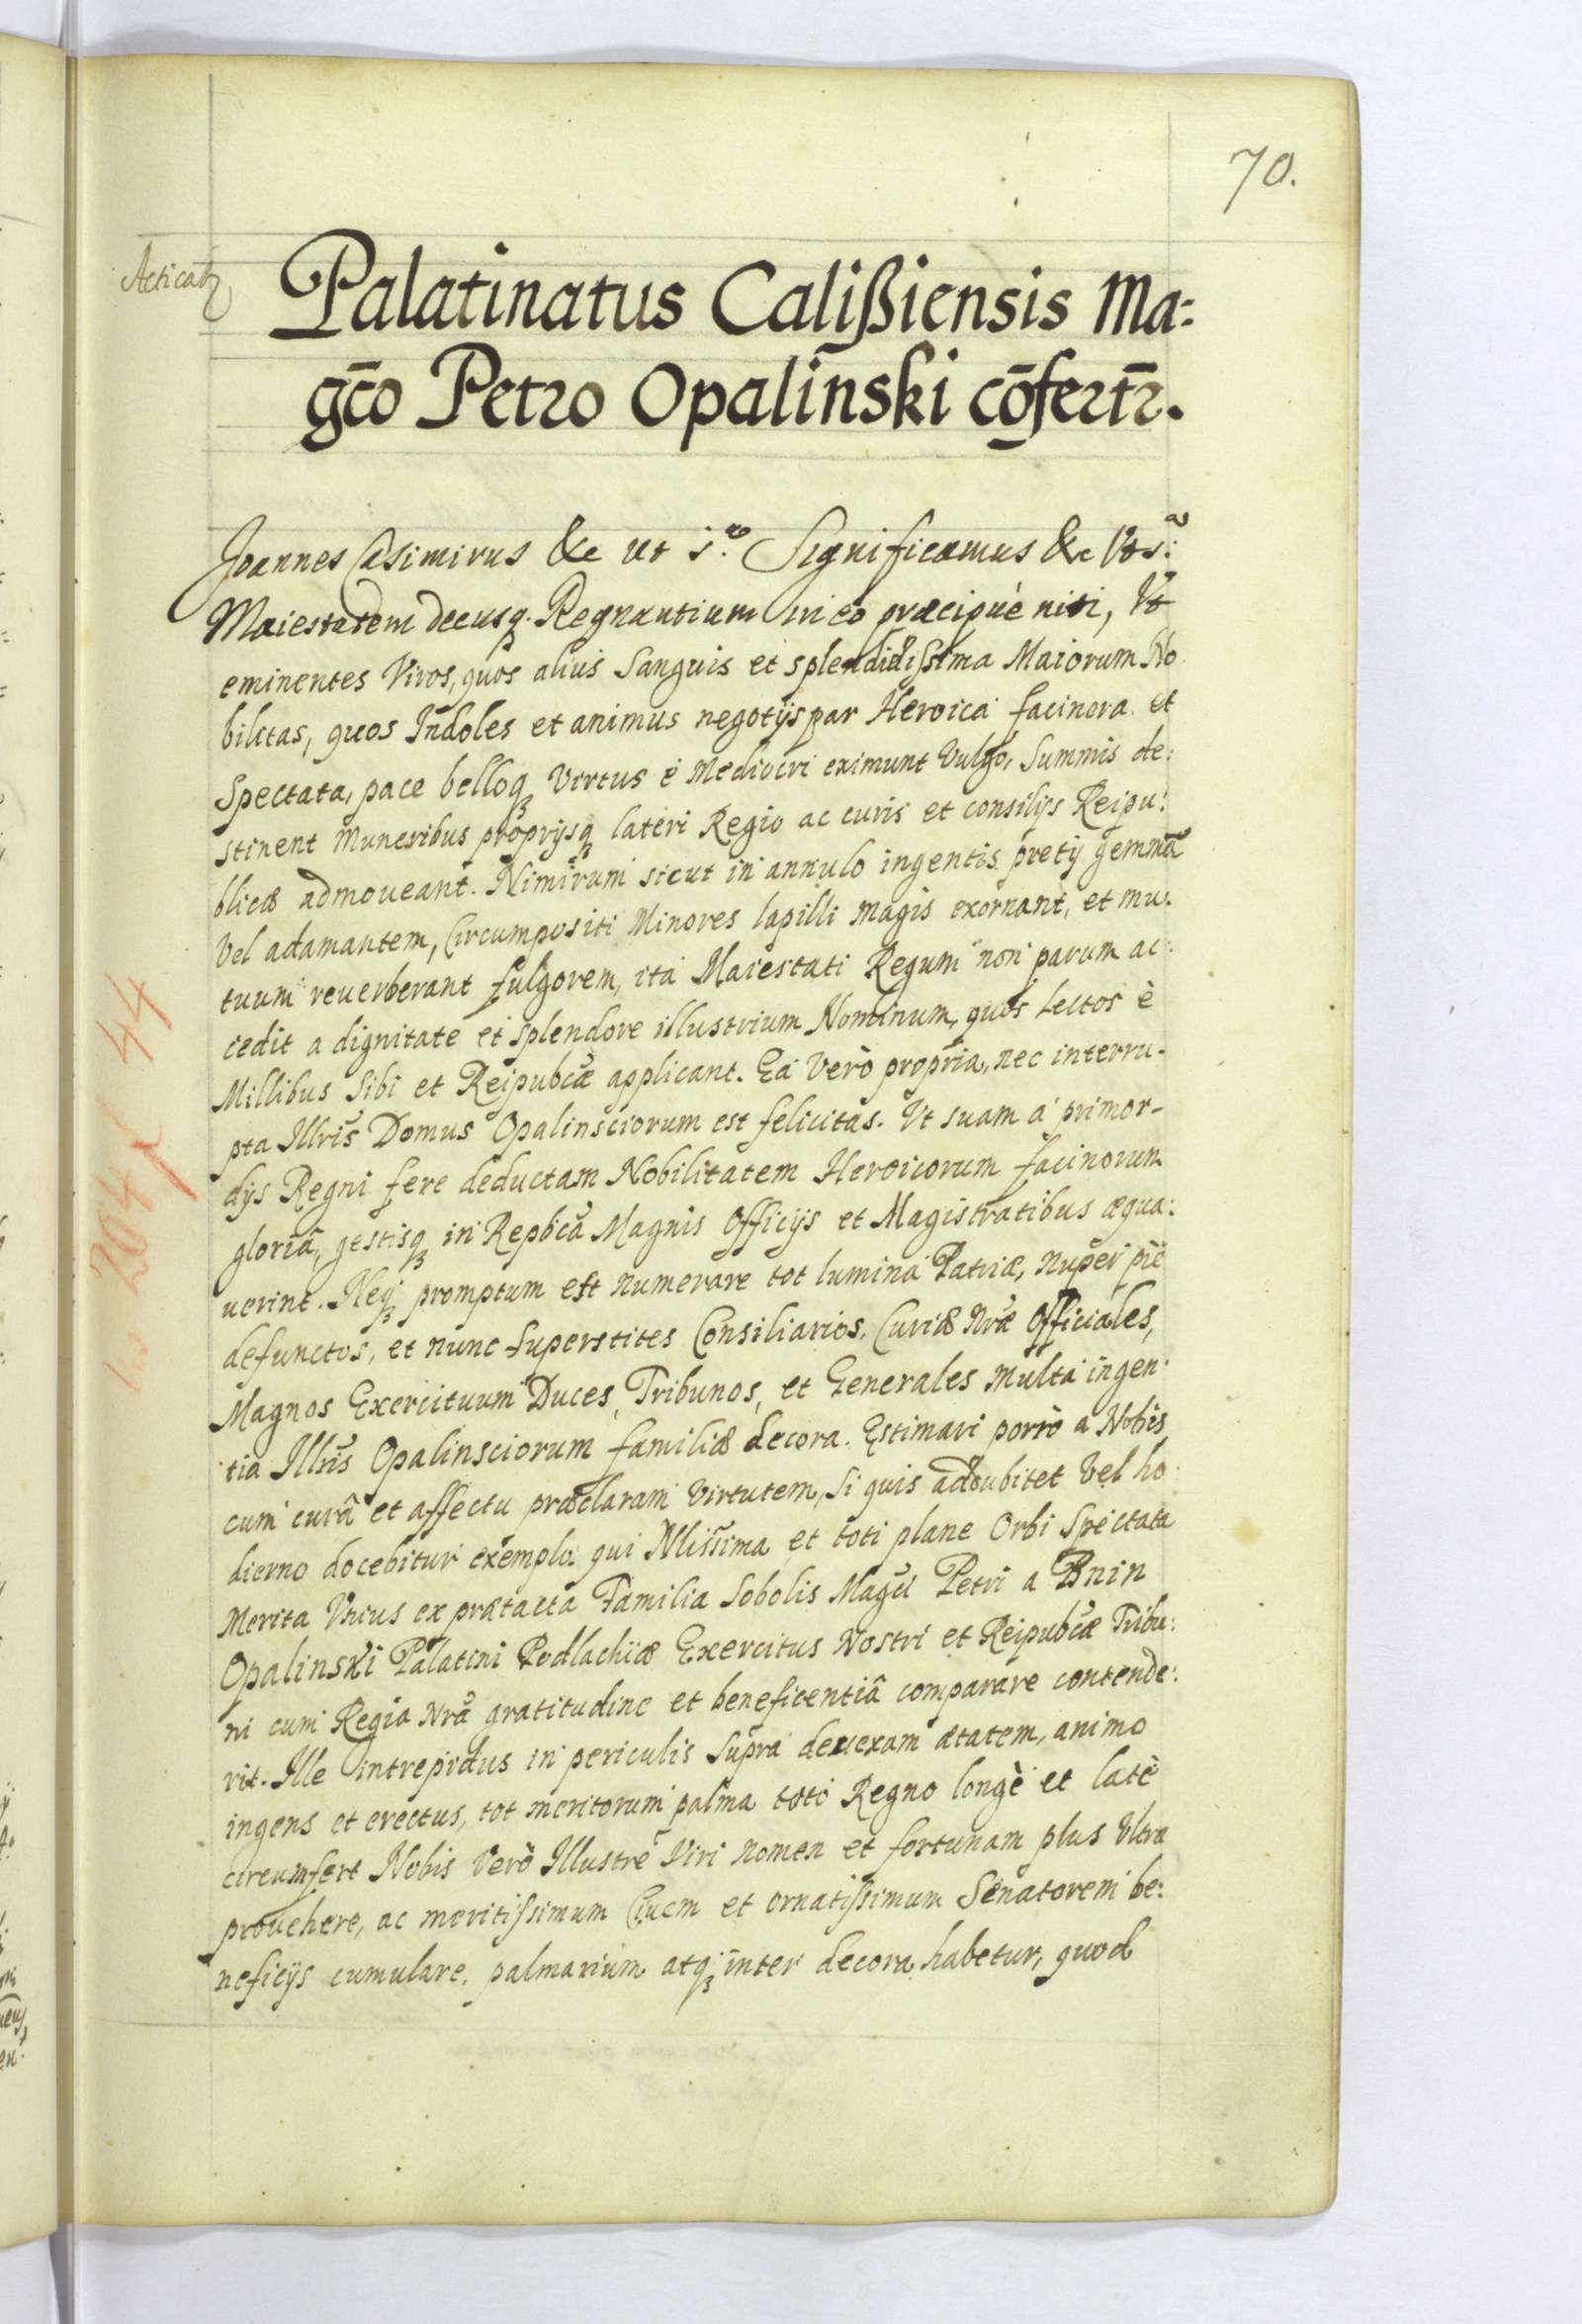 70.
Acticat̃
Palatinatus Calißiensis Ma:
gc̃o Petro Opalinski cõfertr̃.
Joannes Casimirus &c ut s.ra Significamus &c Vt s:a
Maiestatem decusq. Regnantium in eo præcipuè niti, Vt
eminentes Viros, quos altus Sanguis et splendidissima Maiorum No
bilitas, quos Indoles et animus negotijs par Heroica facinora et
Spectata, pace belloq3 Virtus è Mediocri eximunt Vulgo, Summis de:
stinent Muneribus proprijsq3 lateri Regio ac curis et consilijs Reipu:
blicæ admoueant. Nimirum sicut in annulo ingentis pretij gemmã
Vel adamantem, Circumpositi Minores lapilli magis exornant, et mu.
tuum reuerberant fulgorem, ita Maiestati Regum non parum ac:
cedit a dignitate et splendore illustrium Nominum, quos lectos è
Millibus Sibi et Reipubcæ applicant. Ea Verò propria, nec interru-
pta Illris Domus Opalinsciorum est felicitas. Vt suam a primor-
dijs Regni fere deductam Nobilitatem Heroicorum facinorum
gloriâ, gestisq3 in Repbca Magnis Officijs et Magistratibus æqua:
uerint. Neq3 promptum est numerare tot lumina Patriæ, nuper piè
defunctos, et nunc Superstites Consiliarios, Curiæ Nræ Officiales,
Magnos Exercituum Duces, Tribunos, et Generales multa ingen.
tia Illris Opalinsciorum familiæ decora. Estimari porrò a Nobis
cum curâ et affectu præclaram Virtutem, Si quis addubitet Vel ho.
dierno docebitur exemplo: qui Nlissima et toti plane Orbi Spectata
Merita Vnius ex prætacta Familia Sobolis Magci Petri a Bnin
Opalinski Palatini Podlachiæ Exercitus Nostri et Reipubcæ Tribu:
ni cum Regia Nrã gratitudine et beneficentiâ comparare contende:
rit. Ille intrepidus in periculis Supra deuexam ætatem, animo
ingens et erectus, tot meritorum palma toti Regno longè et latè
circumfert Nobis Verò Illustrẽ Viri nomen et fortunam plus Vltra
prouehere, ac meritissimum Ciuem et ornatissimum Senatorem be:
neficijs cumulare, palmarium atq3 inter decora habetur, quod
204
44